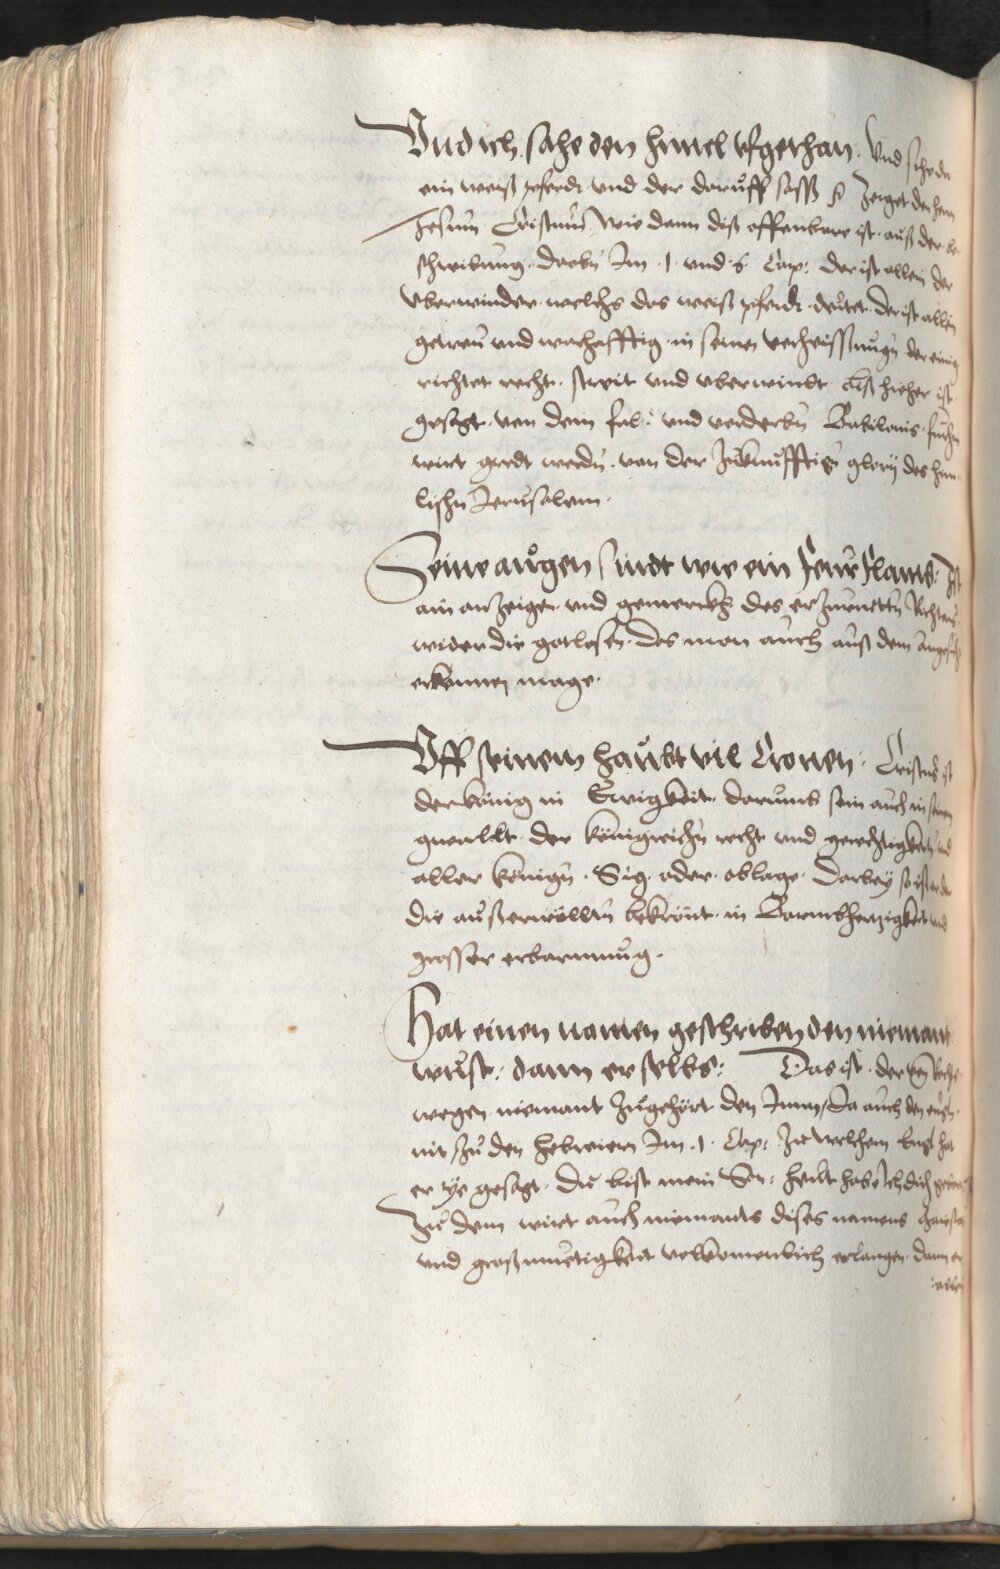 Und ich sahe den himel ufgethan. Und sehe da
ein weiß pferdt. und der daruff sass &c Zeiget der hern
Jesum Cristum, wie dann diß offenbare ist. auß der be
schreibung. darbey Im .1. und .6. Cap: der ist allein der
uberwinder. welchs das weiß pferdt. deutet. Der ist allein
getreu und warhafftig. in seinen verheissungen der einig
richtet recht. streit und uberwindt. Bis hieher ist
gesagt. von dem fal: und verderben Babilonis. furhin
wirt geredt werden. von der zukunfftigen glory des him
lischen Jerusalem.
Seine augen sindt wie ein feur flamb: Ist
ain anzeigen. und gemerckh des erzurnetten Richters
wider die gotlosen. das man auch auß dem angesicht
erkennen mage.
Uff seinem haubt vil Cronen: Cristus ist
der könig in Ewigkeit. darumb sein auch in seinem
gewallt. der königreichen recht und gerechtigkeiten und
aller königen. Sig. oder. oblage. Darbey so ist er der
die außerwölten bekrönt. in Barmhertzigkeit und
grosser erbarmung.
Hat einen namen geschriben den niemant
wust: dann er selbs: Das ist. der
wegen niemant zugehört den Inn, da auch den engeln
nit, zu den hebreiern Im .1. Cap: Zu welchem Engel hat
er ye gesagt. Du bist mein Son: heut habe Ich dich geborn
Zu dem wirt auch niemants dises namens
und großmuetigkeit volkomenlich erlangen. dann er
:allein